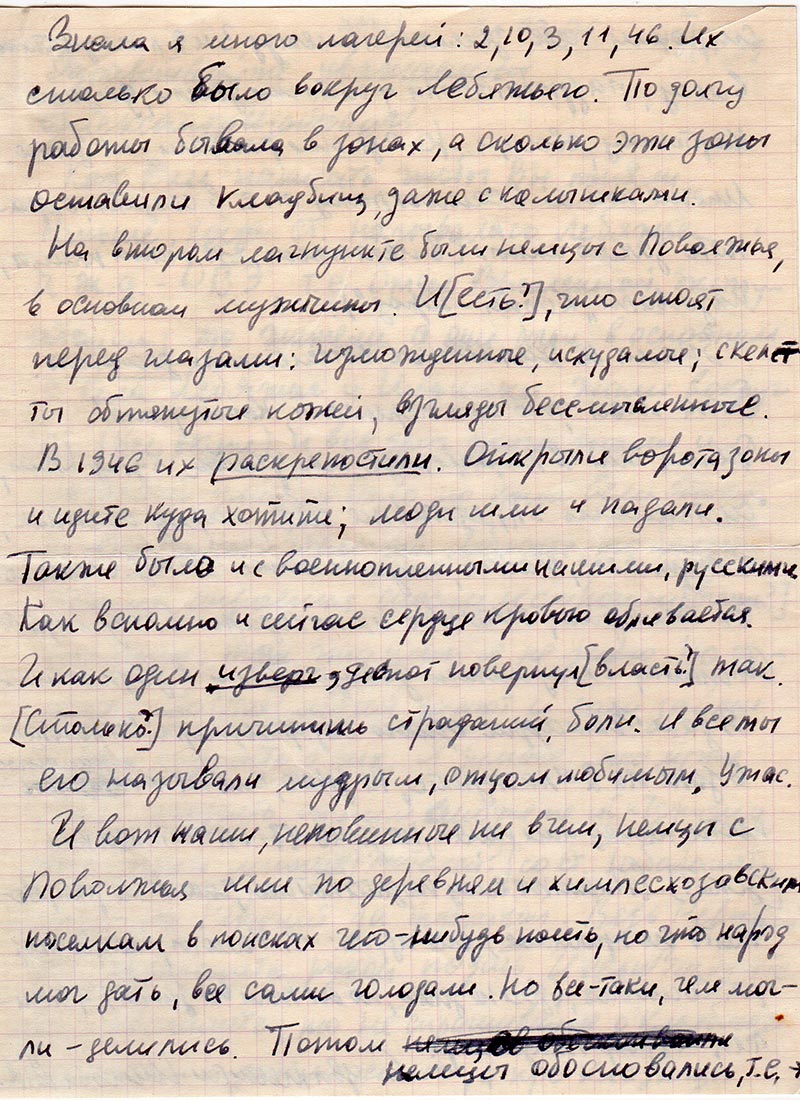 Знала я много лагерей: 2, 10, 3, 11, 46. Их
столько было вокруг Лебяжьего. По долгу
работы бывала в зонах, а сколько эти зоны
оставили кладбищ, даже с колышками.
На втором лагпункте были немцы с Поволжья,
в основном мужчины. И [есть?], что стоят
перед глазами: изможденные, исхудалые; скелет
ты обтянутые кожей, взгляды бессмысленные.
В 1946 их раскрепостили. Открыли ворота зоны
и идите куда хотите; люди шли и падали.
Также было и с военнопленными нашими, русскими.
Как вспомню и сейчас сердце кровью обливается.
И как один изверг, деспот повернул [власть?] так.
[Столько?] причинить страданий, боли. И все мы
его называли мудрым, отцом любимым. Ужас.
И вот наши, неповинные ни в чем, немцы с
Поволжья шли по деревням и химлесхозовским
поселкам в поисках чего-нибудь поесть, но что народ
мог дать, все сами голодали. Но все-таки, чем мог-
ли - делились. Потом
немцы обосновались, т.е. →